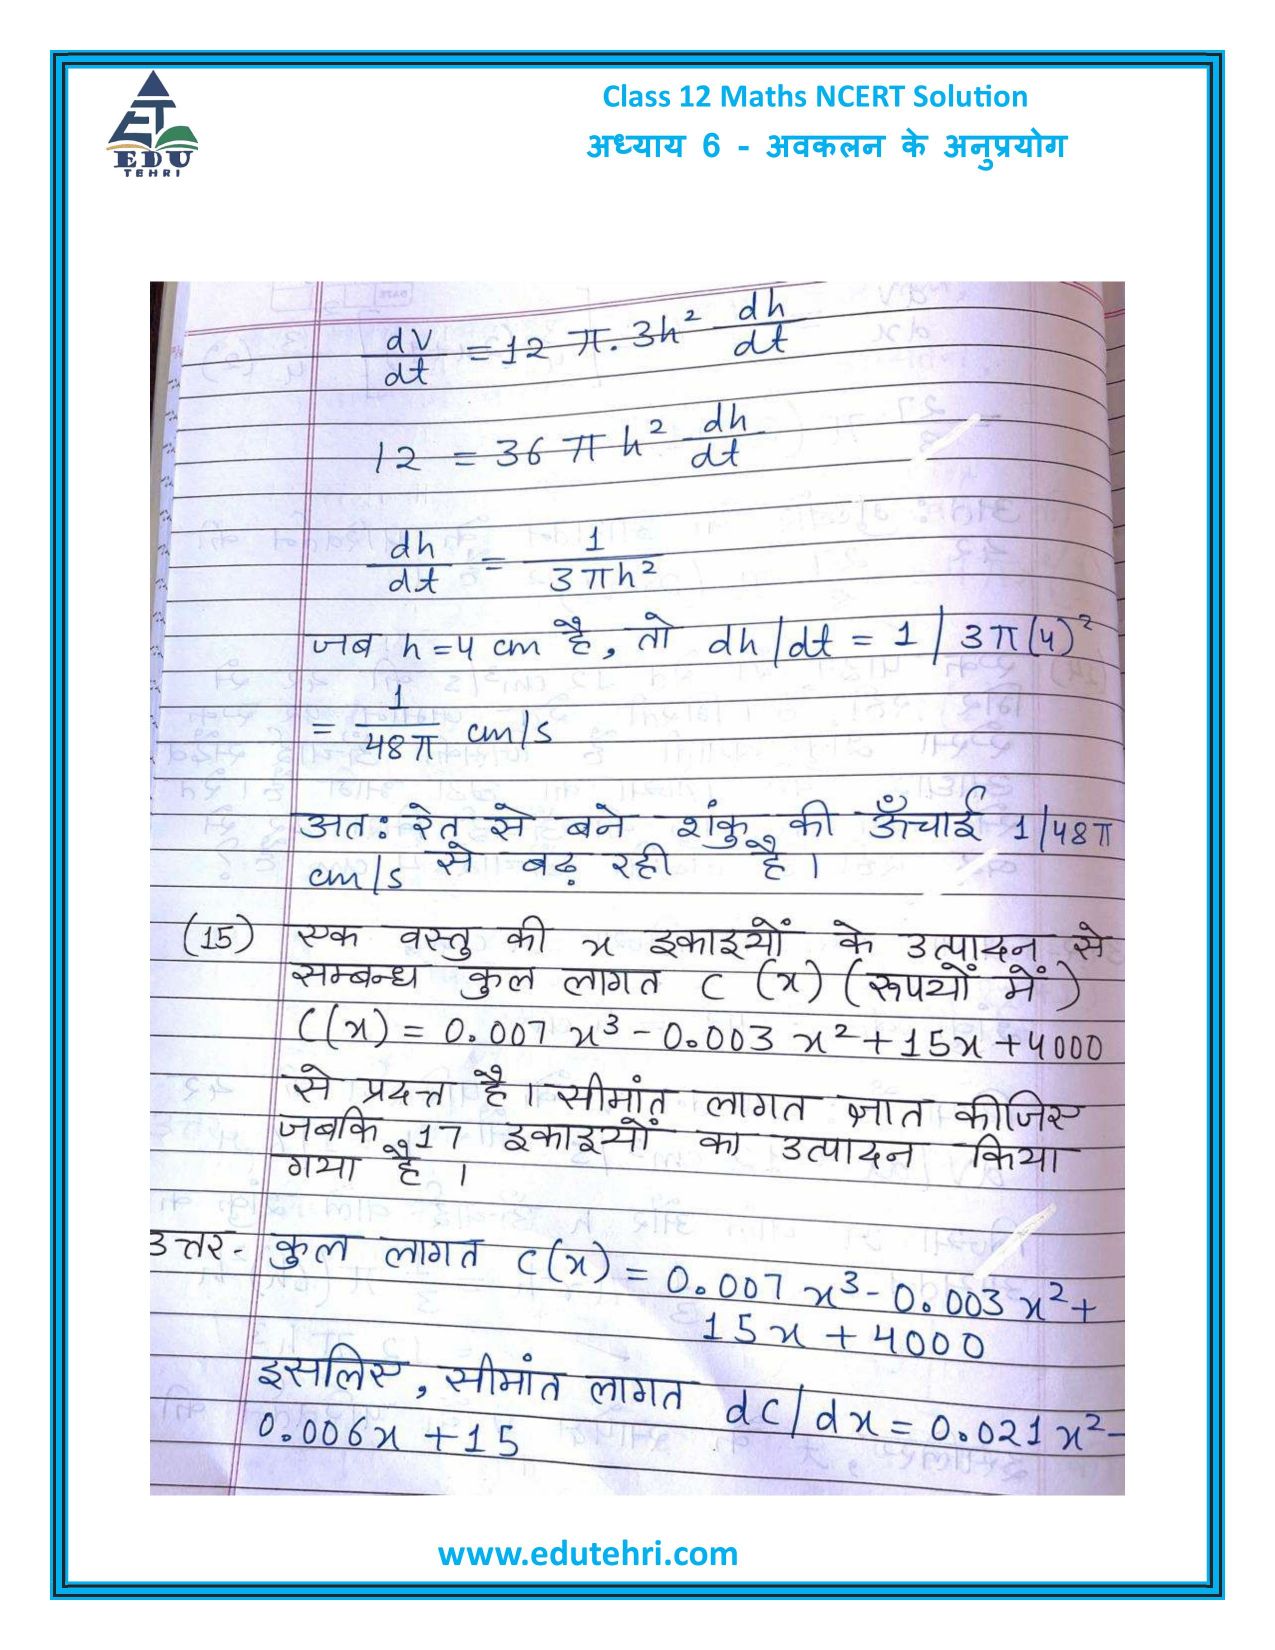 ET
EDU
TEHRI
Class 12 Maths NCERT Solution
अध्याय 6 - अवकलन के अनुप्रयोग
dV/dt = 12 π. 3h² dh/dt
12 = 36 π h² dh/dt
dh/dt = 1/3πh²
जब h=4 cm है, तो dh/dt = 1/3π(4)²
= 1/48π cm/s
अतः रेत से बने शंकु की ऊँचाई 1/48π
cm/s से बढ़ रही है।
(15) एक वस्तु की x इकाइयों के उत्पादन से
सम्बन्ध कुल लागत C (x) (रूपयों में)
C(x) = 0.007 x³ - 0.003 x² + 15x + 4000
से प्रदत्त है। सीमांत लागत ज्ञात कीजिए
जबकि 17 इकाइयों का उत्पादन किया
गया है।
उत्तर - कुल लागत C(x) = 0.007 x³ - 0.003 x² +
15x + 4000
इसलिए, सीमांत लागत dC/dx = 0.021x² -
0.006x + 15
www.edutehri.com